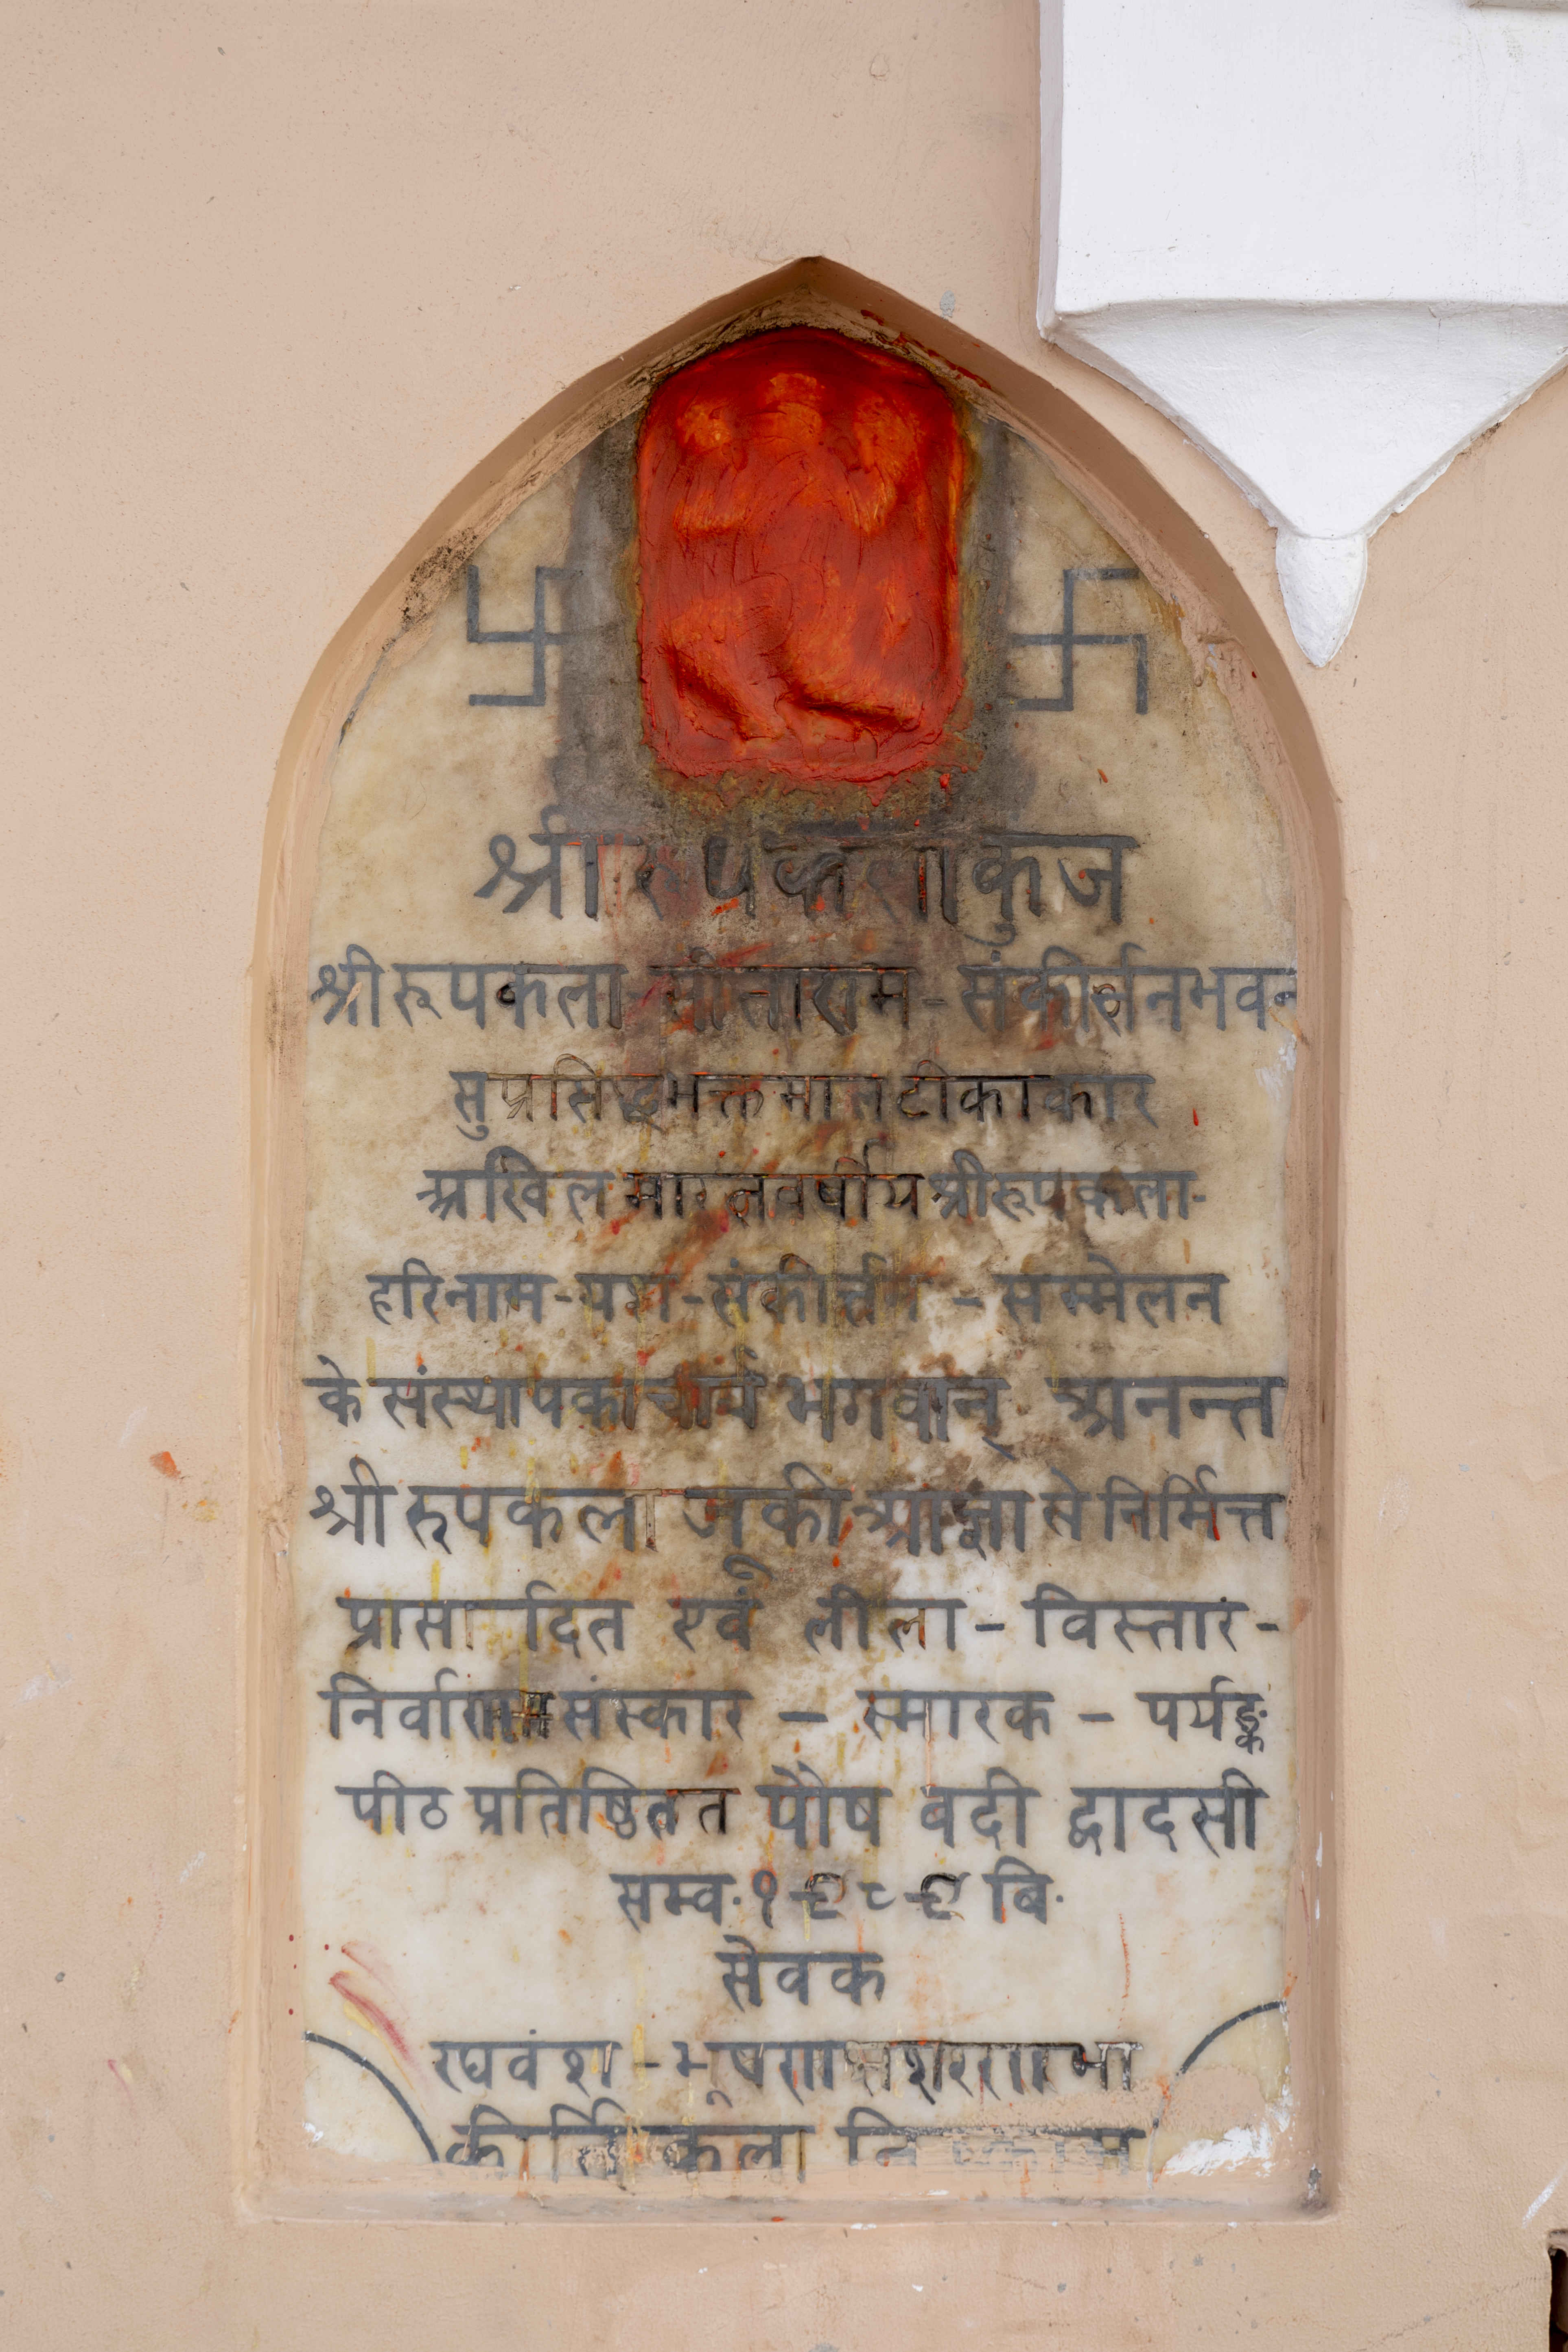 श्रीरूपकलाकुंज
श्रीरूपकला-सीताराम-संकीर्तनभवन
सुप्रसिद्धभक्तमालटीकाकार
अखिलभारतवर्षीयश्रीरूपकला-
हरिनाम-यश-संकीर्त्तन-सम्मेलन
के संस्थापकाचार्य भगवान् अनन्त
श्रीरूपकला जूकी आज्ञा से निर्मित्त
प्रासादित एवं लीला-विस्तार-
निर्वाण संस्कार - स्मारक - पर्यङ्क
पीठ प्रतिष्ठित पौष वदी द्वादसी
सम्व॰ १९८९ वि॰
सेवक
रघवंश-भूषण
कीर्तिकला